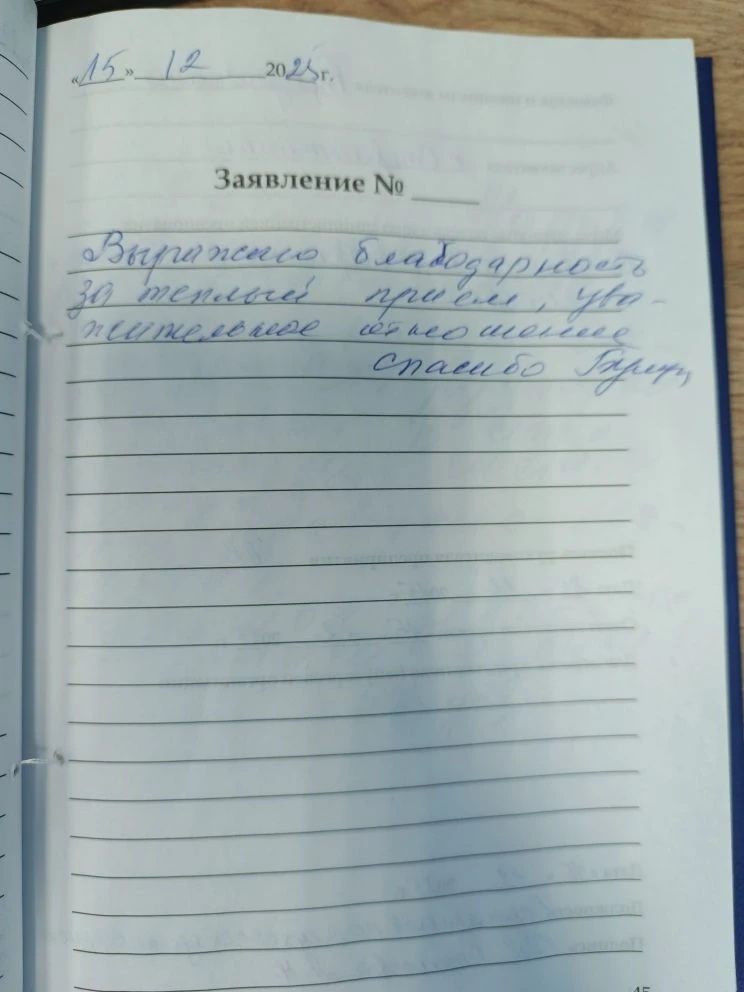 «15» 12 2025 г.
Заявление №
Выражаю благодарность
за теплый прием, ува-
жительное отношение
спасибо